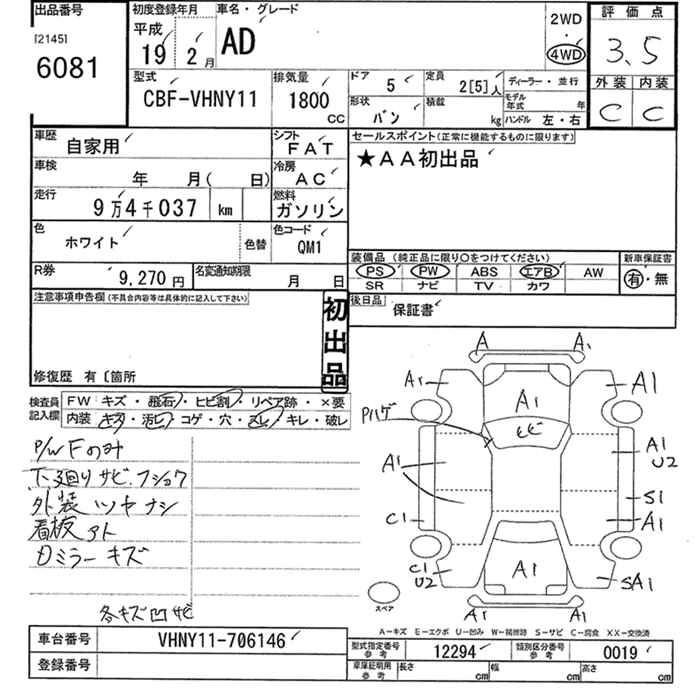 出品番号
[2145]
6081
初度登録年月
平成
19 2月
車名・グレード
AD
2WD
・
4WD
評価点
3.5
外装 内装
C C
型式
CBF-VHNY11
排気量
1800
CC
ドア 5
定員 2[5]人
ディーラー・並行
形状 バン
積載 kg
モデル年式 年
ハンドル 左・右
車歴 自家用
シフト FAT
車検 年 月( 日)
冷房 AC
走行 9万4千037 km
燃料 ガソリン
色 ホワイト
色替
色コード QM1
R券 9,270円
名変通知期限 月 日
セールスポイント(正常に機能するものに限ります)
★AA初出品
装備品 (純正品に限り○をつけてください)
PS PW ABS エアB AW
SR ナビ TV カワ
新車保証書
有・無
後日品 保証書
注意事項申告欄(不具合内容等は具体的に記入して下さい)
初出品
修復歴 有〔箇所
検査員記入欄
FW キズ・飛石・ヒビ割・リペア跡・×要
内装 キズ・汚レ・コゲ・穴・スレ・キレ・破レ
P/W Fのみ
下廻りサビ.フショク
外装ツヤナシ
看板アト
Dミラーキズ
各キズ凹サビ
A A1
A1 A1 A1
Pハゲ ヒビ
A1 A1
U2
S1
C1 A1
C1
U2 A1 SA1
スペア
A1 A1
A−キズ E−エクボ U−凹み W−補修跡 S−サビ C−腐食 XX−交換済
車台番号 VHNY11-706146
登録番号
型式指定番号 参考 12294
類別区分番号 参考 0019
車庫証明用 参考 長さ cm 幅 cm 高さ cm